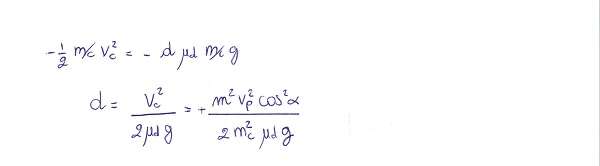 -1/2 m_c v_c² = - d μd m_c g
d = v_c² / 2μd g = + m² v_p² cos²α / 2 m_c² μd g